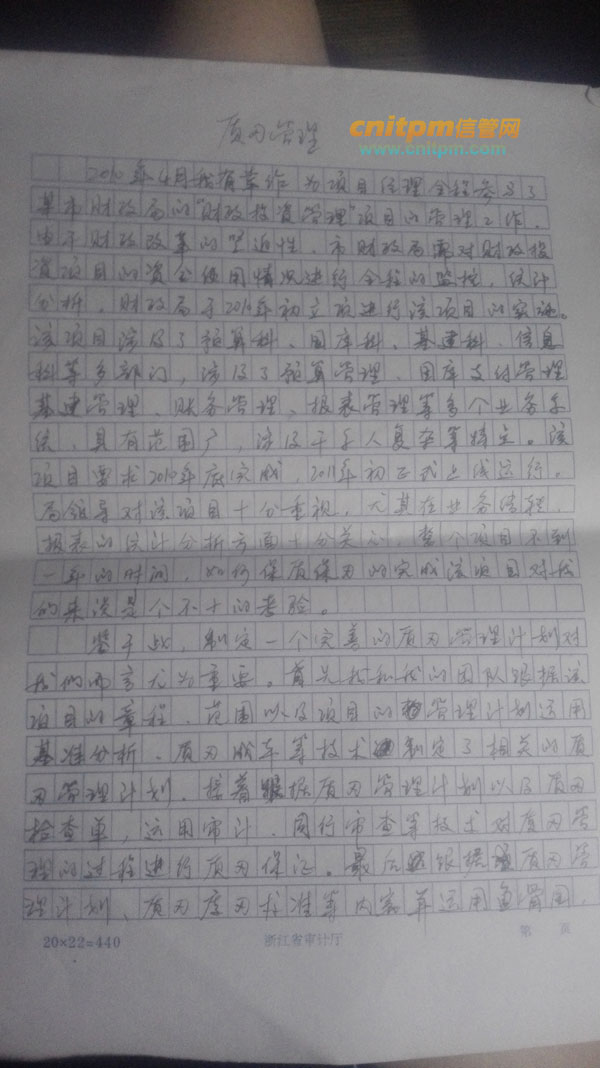 cnitpm信管网
www.cnitpm.com
质刃管理
2010年4月我有幸作为项目经理全程参与了
某市财政局的“财政投资管理”项目的管理工作,
由于财政改革的紧迫性、市财政局需对财政投
资项目的资金使用情况进行全程的监控,统计
分析,财政局于2010年初立项进行该项目的实施。
该项目涉及了预算科、国库科、基建科、信息
科等多部门,涉及了预算管理、国库支付管理
基建管理、财务管理、报表管理等多个业务系
统,具有范围广,涉及干系人复杂等特点。该
项目要求2010年底完成,2011年初正式上线运行。
局领导对该项目十分重视,尤其在业务流程,
报表的统计分析方面十分关心,整个项目不到
一年的时间,如何保质保刃的完成该项目对我
的来说是个不小的考验。
鉴于此,制定一个完善的质刃管理计划对
我们而言尤为重要。首先我和我的团队根据该
项目的章程、范围以及项目的管理计划运用
基准分析、质刃成本等技术制定了相关的质
刃管理计划,接着根据质刃管理计划以及质刃
检查单,运用审计、同行审查等技术对质刃管
理的过程进行质刃保证。最后根据质刃管
理计划、质刃度刃标准等内容并运用鱼骨图,
20×22=440
浙江省审计厅
第 页